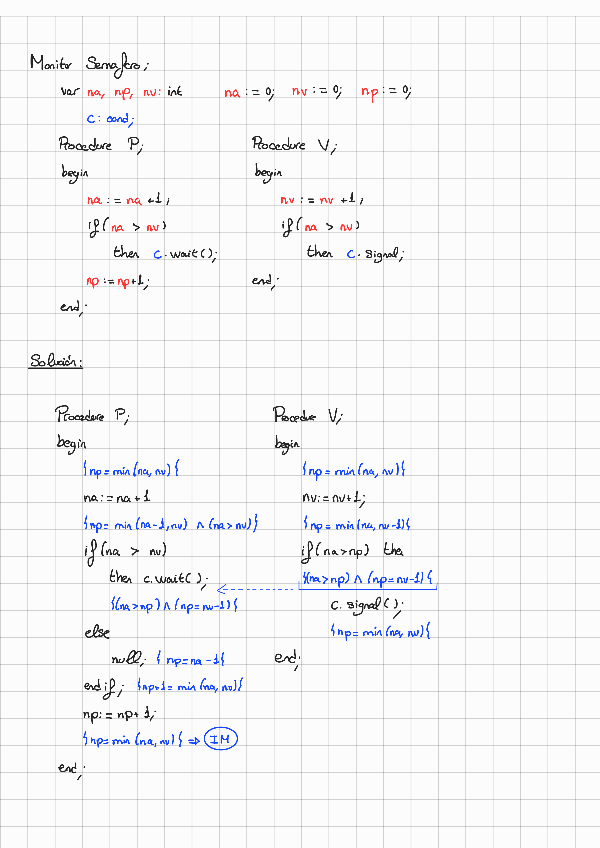 Monitor Semáforo;
var na, np, nv: int na := 0; nv := 0; np := 0;
c: cond;
Procedure P;
begin
na := na +1;
if (na > nv)
then c.wait();
np := np+1;
end;
Procedure V;
begin
nv := nv +1;
if (na > nv)
then c.signal;
end;
Solución:
Procedure P;
begin
{np = min (na, nv){
na := na + 1
{np = min (na-1, nv) ∧ (na > nv)}
if (na > nv)
then c.wait();
{(na > np) ∧ (np = nv-1){
else
null; { np = na - 1{
end if; {np+1 = min (na, nv){
np := np + 1;
{np = min (na, nv){ => IM
end;
Procedue V;
begin
{np = min (na, nv){
nv: = nv+1;
{np = min (na, nv-1){
if (na > np) the
{(na > np) ∧ (np = nv-1){
c. signal();
{np = min (na, nv){
end;